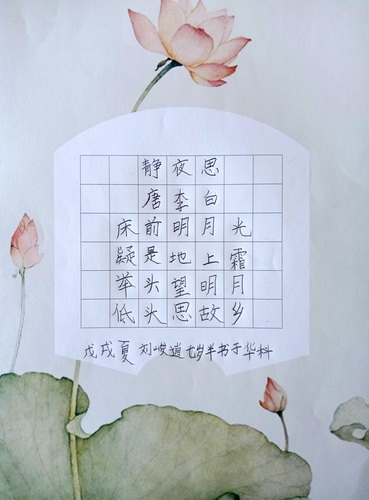 静夜思
唐李白
床前明月光
疑是地上霜
举头望明月
低头思故乡
戊戌夏 刘峻逍七岁半书于华科